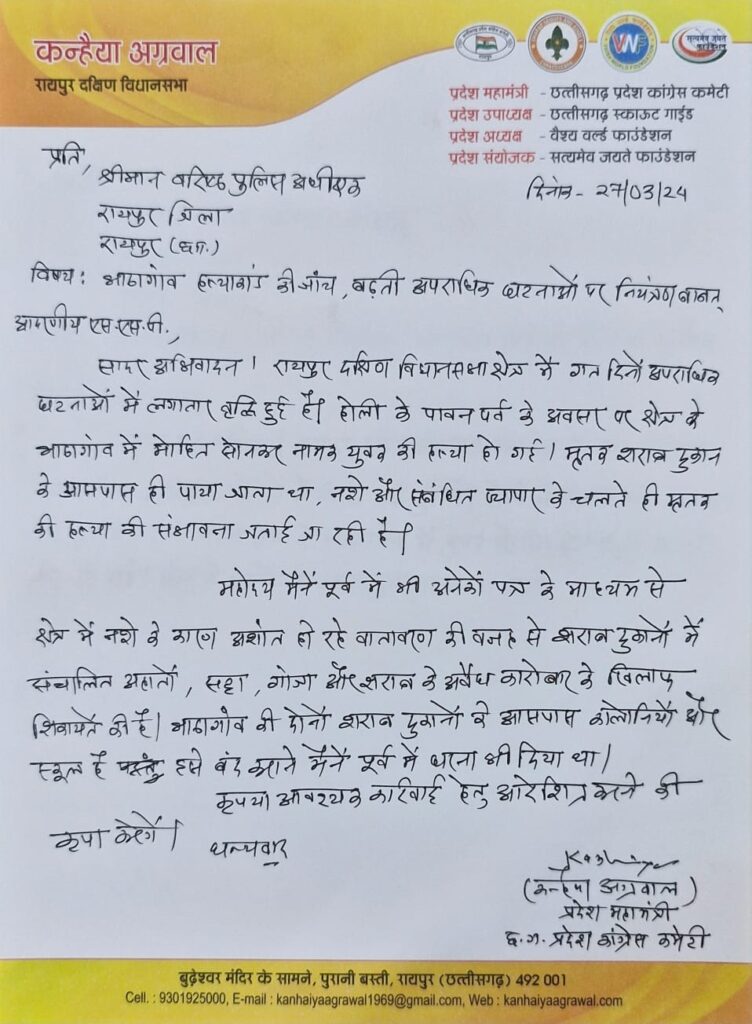 कन्हैया अग्रवाल
रायपुर दक्षिण विधानसभा
प्रदेश महामंत्री - छत्तीसगढ़ प्रदेश कांग्रेस कमेटी
प्रदेश उपाध्यक्ष - छत्तीसगढ़ स्काऊट गाईड
प्रदेश अध्यक्ष - वैश्य वर्ल्ड फाउंडेशन
प्रदेश संयोजक - सत्यमेव जयते फाउंडेशन
प्रति,
श्रीमान वरिष्ठ पुलिस अधीक्षक
रायपुर जिला
रायपुर (छ.ग.)
दिनांक- 27/03/24
विषय: भाठागांव हत्याकांड की जाँच, बढ़ती अपराधिक घटनाओं पर नियंत्रण बाबत्
आदरणीय एस.एस.पी.,
सादर अभिवादन। रायपुर दक्षिण विधानसभा क्षेत्र में गत दिनों अपराधिक
घटनाओं में लगातार वृद्धि हुई है। होली के पावन पर्व के अवसर पर क्षेत्र के
भाठागांव में मोहित सोनकर नामक युवक की हत्या हो गई। मृतक शराब दुकान
के आसपास ही पाया जाता था, नशे और संबंधित व्यापार के चलते ही मृतक
की हत्या की संभावना जताई जा रही है।
महोदय मैनें पूर्व में भी अनेकों पत्र के माध्यम से
क्षेत्र में नशे के कारण अशांत हो रहे वातावरण की वजह से शराब दुकानों में
संचालित अहातों, सट्टा, गांजा और शराब के अवैध कारोबार के खिलाफ
शिकायतें की है। भाठागांव की दोनों शराब दुकानों के आसपास कालोनियाँ और
स्कूल है इसे बंद कराने मैनें पूर्व में धरना भी दिया था।
कृपया आवश्यक कार्रवाई हेतु आदेशित करने की
कृपा करेंगें।
धन्यवाद
(कन्हैया अग्रवाल)
प्रदेश महामंत्री
छ.ग. प्रदेश कांग्रेस कमेटी
बुढ़ेश्वर मंदिर के सामने, पुरानी बस्ती, रायपुर (छत्तीसगढ़) 492 001
Cell. : 9301925000, E-mail : kanhaiyaagrawal1969@gmail.com, Web : kanhaiyaagrawal.com